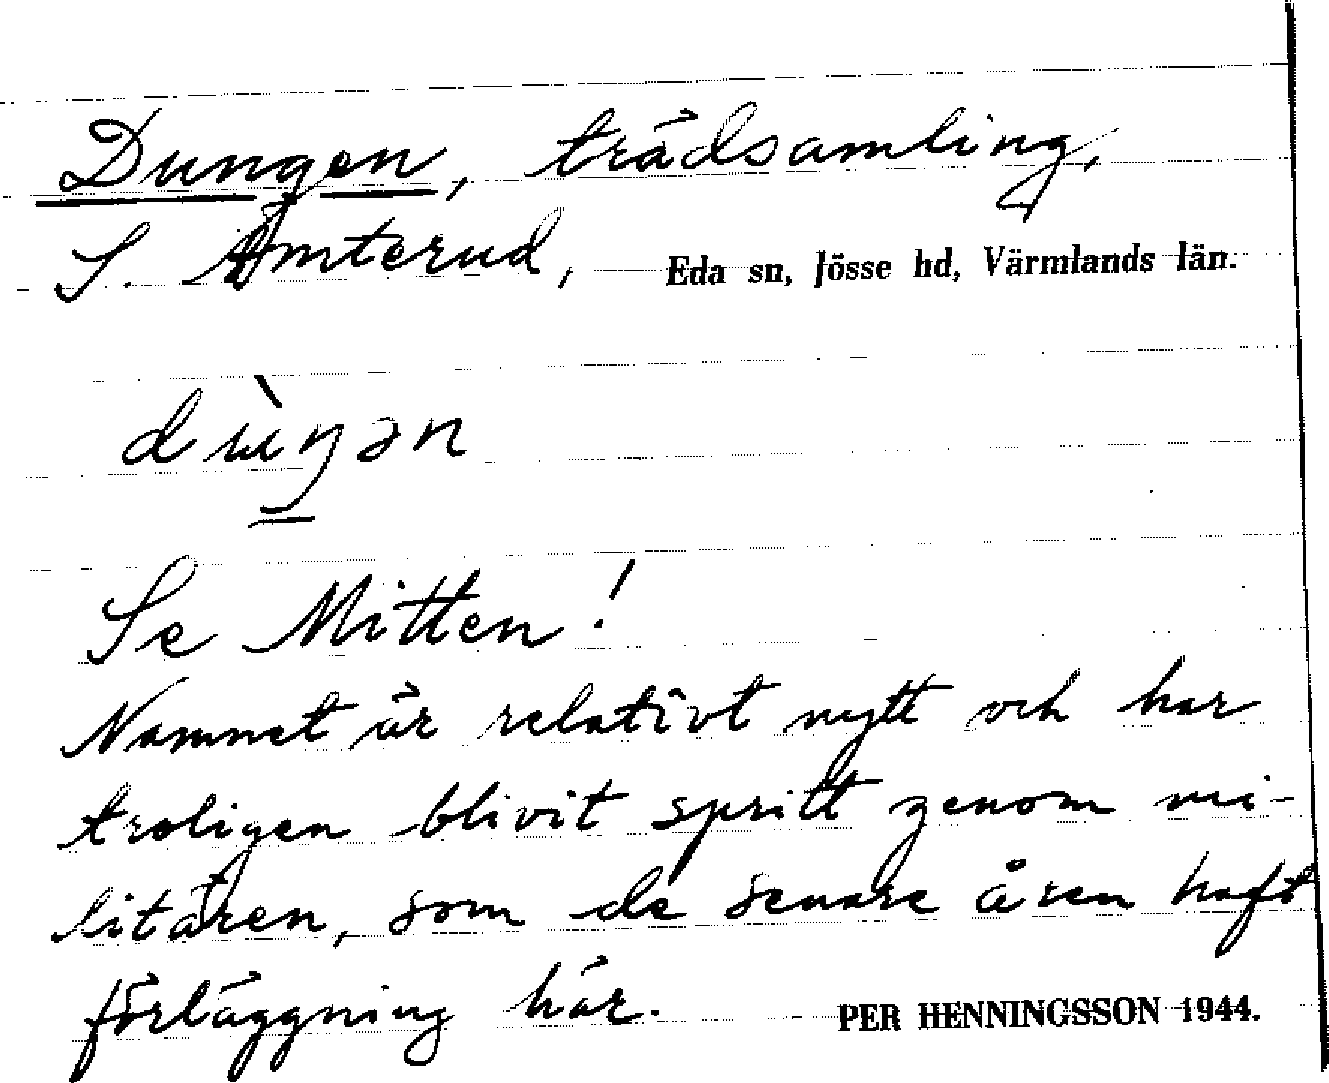 Dungen, trädsamling,
S. Åmterud, Eda sn, Jösse hd, Värmlands län.
dùŋən
Se Mitten!
Namnet är relativt nytt och har
troligen blivit spritt genom mi-
litären, som de senare åren haft
förläggning här. PER HENNINGSSON 1944.